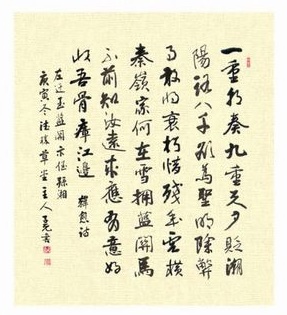 一封朝奏九重天夕貶潮
陽路八千欲為聖明除弊
事敢將衰朽惜殘年雲橫
秦嶺家何在雪擁藍關馬
不前知汝遠來應有意好
收吾骨瘴江邊 韓愈詩
左迁至藍關示侄孫湘
庚寅冬草堂主人書